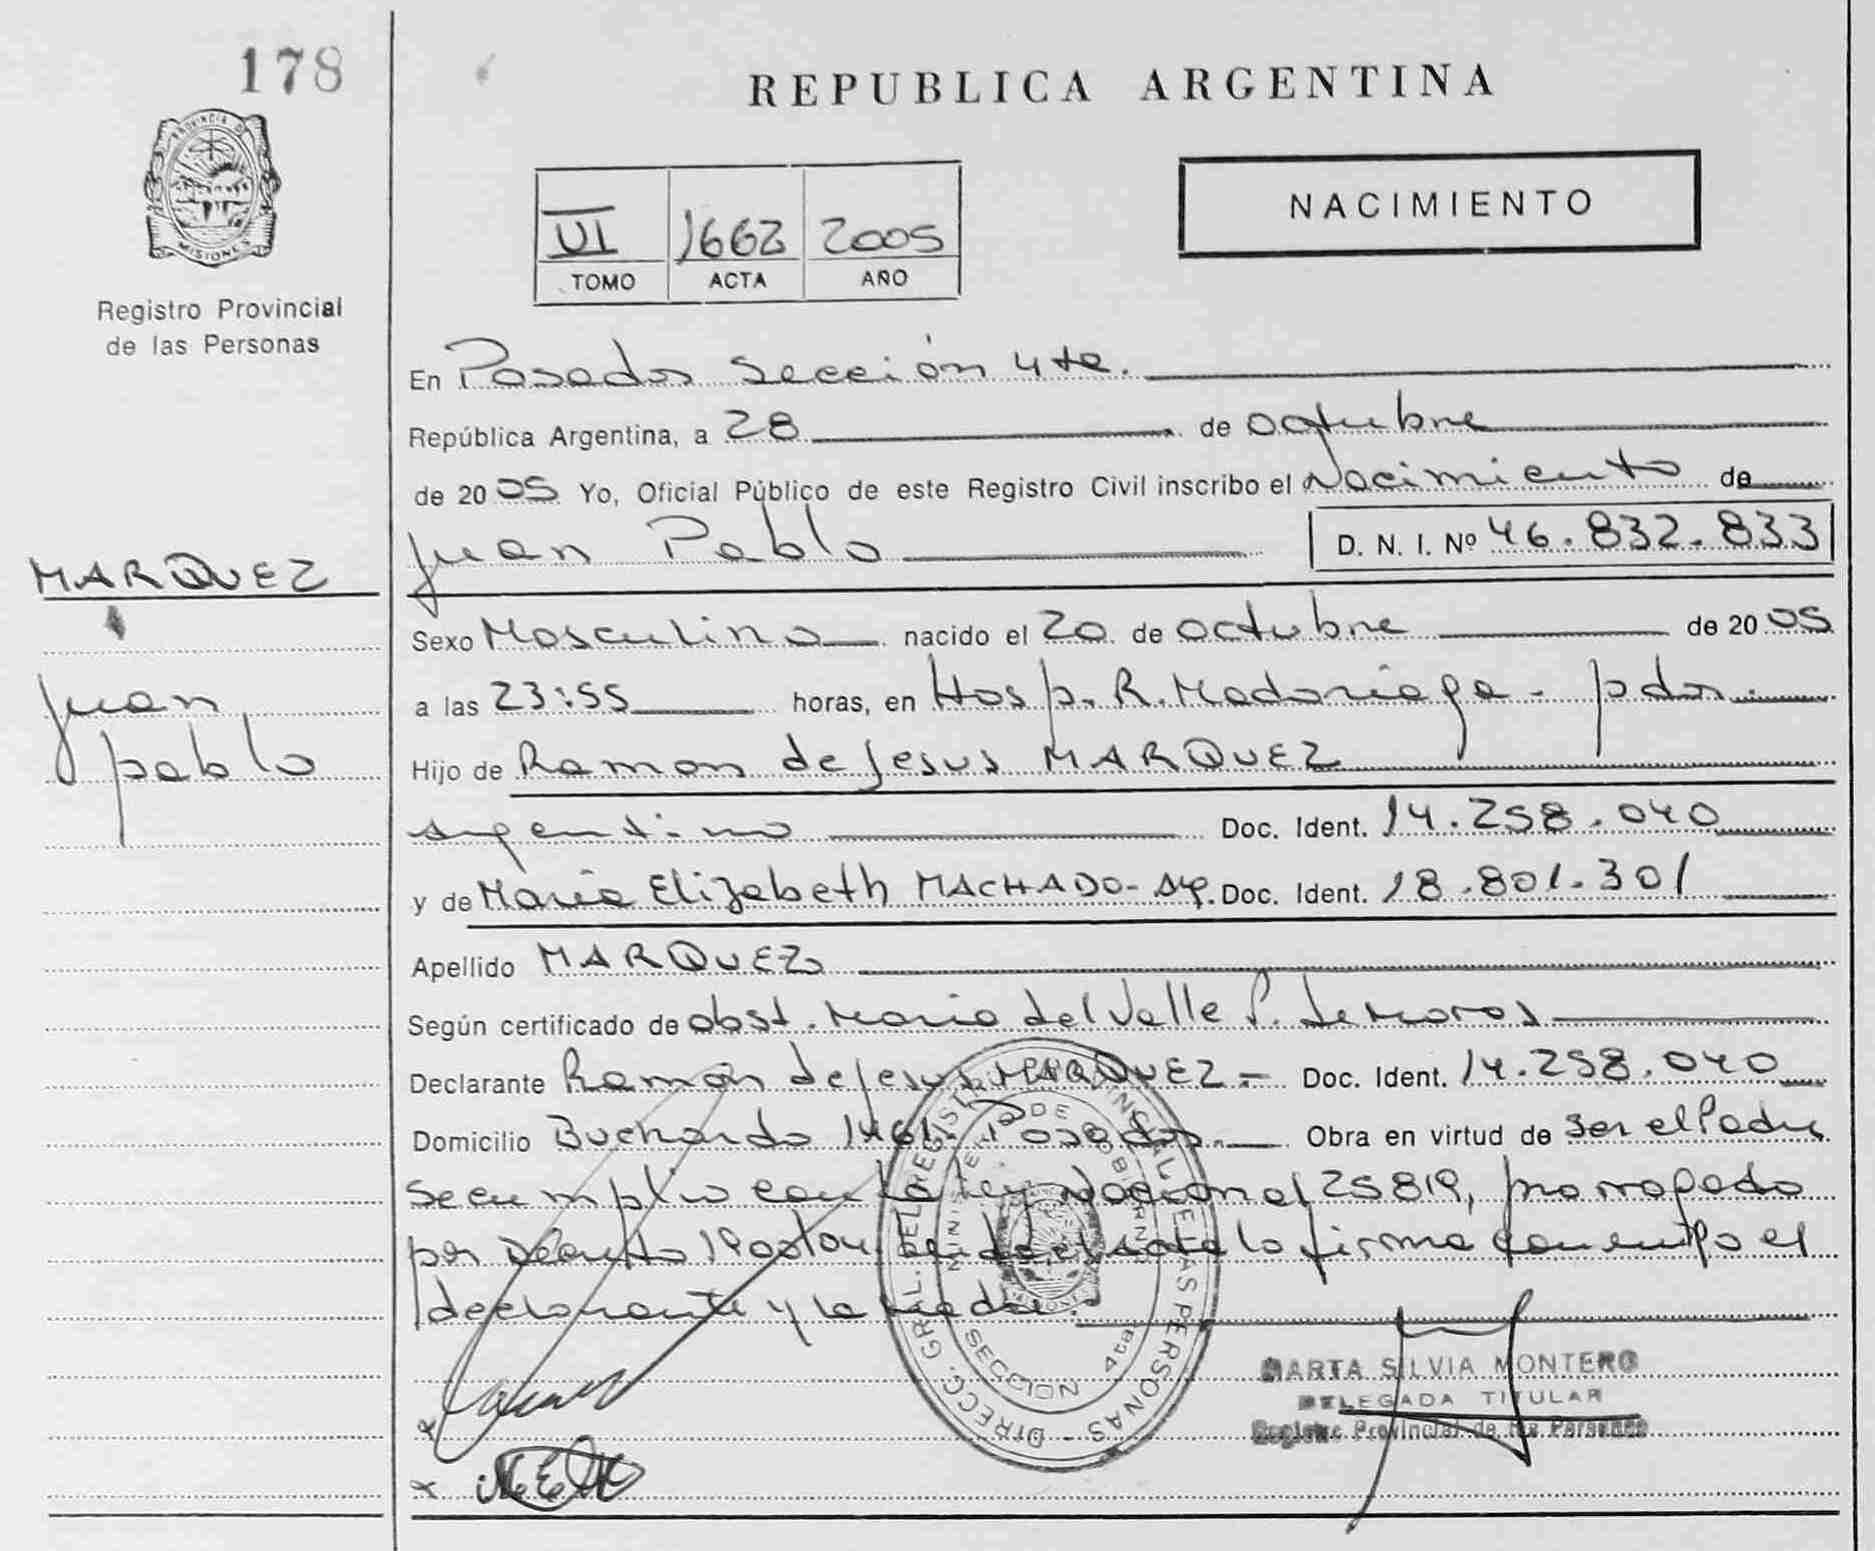 178
PROVINCIA DE
MISIONES
Registro Provincial
de las Personas
MARQUEZ
Juan
pablo
REPUBLICA ARGENTINA
VI 1662 2005
TOMO ACTA AÑO
NACIMIENTO
En Posadas Sección 4ta.
República Argentina, a 28 de octubre
de 2005 Yo, Oficial Público de este Registro Civil inscribo el Nacimiento de
Juan Pablo D. N. I. Nº 46.832.833
Sexo Masculino nacido el 20 de octubre de 2005
a las 23:55 horas, en Hosp. R. Madariaga - pdas.
Hijo de Ramon de Jesus MARQUEZ
argentino Doc. Ident. 14.258.040
y de Maria Elizabeth MACHADO- Arg. Doc. Ident. 18.801.301
Apellido MARQUEZ
Según certificado de obst. Maria del Valle P. de Moros
Declarante Ramón de Jesus MARQUEZ.- Doc. Ident. 14.258.040
Domicilio Buchardo 1461. Posadas. Obra en virtud de Ser el Padre
Se cumplio con la ley Nacional 25819, prorrogada
por Decreto 1900/04. la firma el
declarante y la madre.
DIRECC. GRAL. DEL REGISTRO PROVINCIAL DE LAS PERSONAS
MINISTERIO DE GOBIERNO
SECCION 4ta
MARTA SILVIA MONTERO
DELEGADA TITULAR
Registro Provincial de las Personas